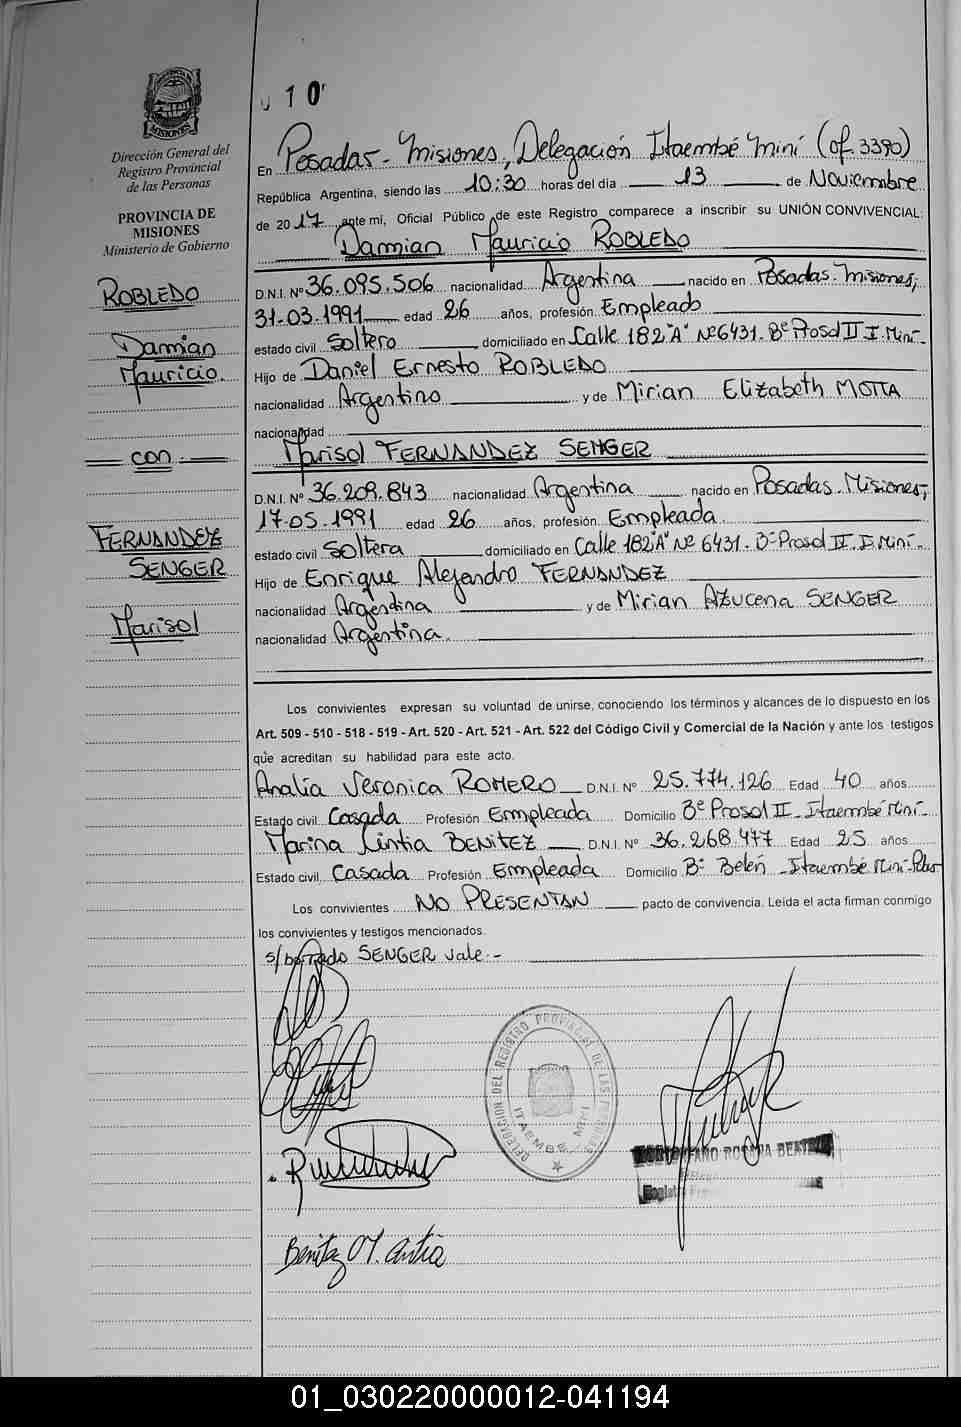 010
PROVINCIA DE MISIONES
Dirección General del
Registro Provincial
de las Personas
PROVINCIA DE
MISIONES
Ministerio de Gobierno
ROBLEDO
Damian
Mauricio
con
FERNANDEZ
SENGER
Marisol
En Posadas - Misiones, Delegación Itaembé Miní (of. 3390)
República Argentina, siendo las 10:30 horas del día 13 de Noviembre
de 2017 ante mí, Oficial Público de este Registro comparece a inscribir su UNIÓN CONVIVENCIAL:
Damian Mauricio ROBLEDO
D.N.I. Nº 36.095.506 nacionalidad Argentina nacido en Posadas. Misiones,
31-03-1991 edad 26 años, profesión Empleado
estado civil Soltero domiciliado en Calle 182"A" Nº 6431. Bº Prosol II I. Miní.
Hijo de Daniel Ernesto ROBLEDO
nacionalidad Argentino y de Mirian Elizabeth MOTTA
nacionalidad
Marisol FERNANDEZ SENGER
D.N.I. Nº 36.209.843 nacionalidad Argentina nacido en Posadas. Misiones,
17-05-1991 edad 26 años, profesión Empleada
estado civil Soltera domiciliado en Calle 182"A" Nº 6431. Bº Prosol II. I. Miní.
Hijo de Enrique Alejandro FERNANDEZ
nacionalidad Argentina y de Mirian Azucena SENGER
nacionalidad Argentina.
Los convivientes expresan su voluntad de unirse, conociendo los términos y alcances de lo dispuesto en los
Art. 509 - 510 - 518 - 519 - Art. 520 - Art. 521 - Art. 522 del Código Civil y Comercial de la Nación y ante los testigos
que acreditan su habilidad para este acto.
Analía Veronica ROMERO D.N.I. Nº 25.774.126 Edad 40 años
Estado civil Casada Profesión Empleada Domicilio Bº Prosol II - Itaembé Miní -
Marina Cintia BENITEZ D.N.I. Nº 36.268.477 Edad 25 años
Estado civil Casada Profesión Empleada Domicilio Bº Belén - Itaembé Miní - Pdas
Los convivientes NO PRESENTAN pacto de convivencia. Leida el acta firman conmigo
los convivientes y testigos mencionados.
s/borrado SENGER vale.-
DELEGACION DEL REGISTRO PROVINCIAL DE LAS PERSONAS
ITAEMBE MINI
ROSANA BEATRIZ
Benitez M. Cintia
01_030220000012-041194